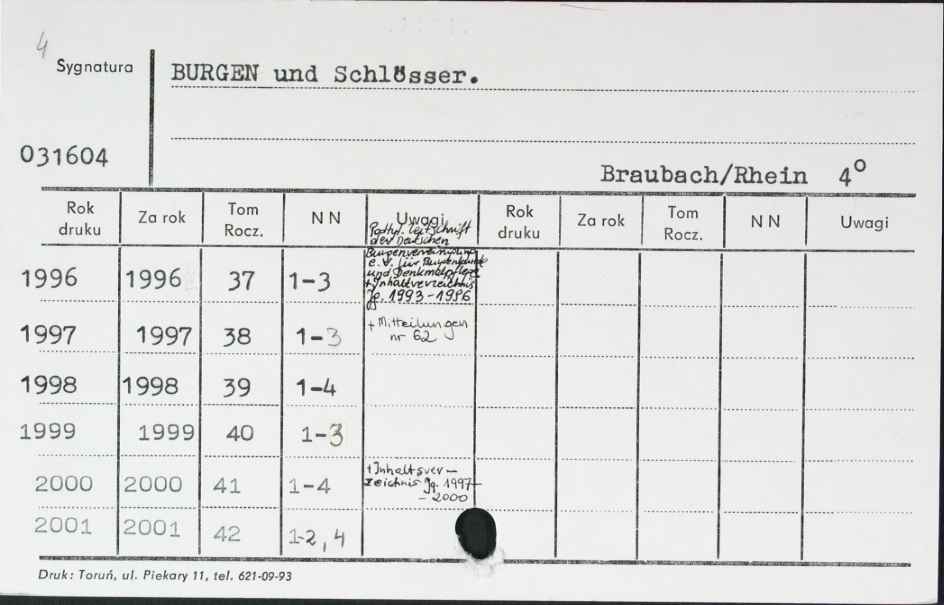 4
Sygnatura
BURGEN und Schlösser.
031604
Braubach/Rhein 4°
Rok druku Za rok Tom Rocz. N N Uwagi Rok druku Za rok Tom Rocz. N N Uwagi
Zeitschrift
der Deutschen
Burgenvereinigung
e.V. für Burgenkunde
und Denkmalpflege
+Inhaltverzeichnis
Jg. 1993-1996
1996 1996 37 1-3
1997 1997 38 1-3 + Mitteilungen
nr 62
1998 1998 39 1-4
1999 1999 40 1-3
2000 2000 41 1-4 + Inhaltsver-
zeichnis Jg. 1997-
-2000
2001 2001 42 1-2, 4
Druk: Toruń, ul. Piekary 11, tel. 621-09-93